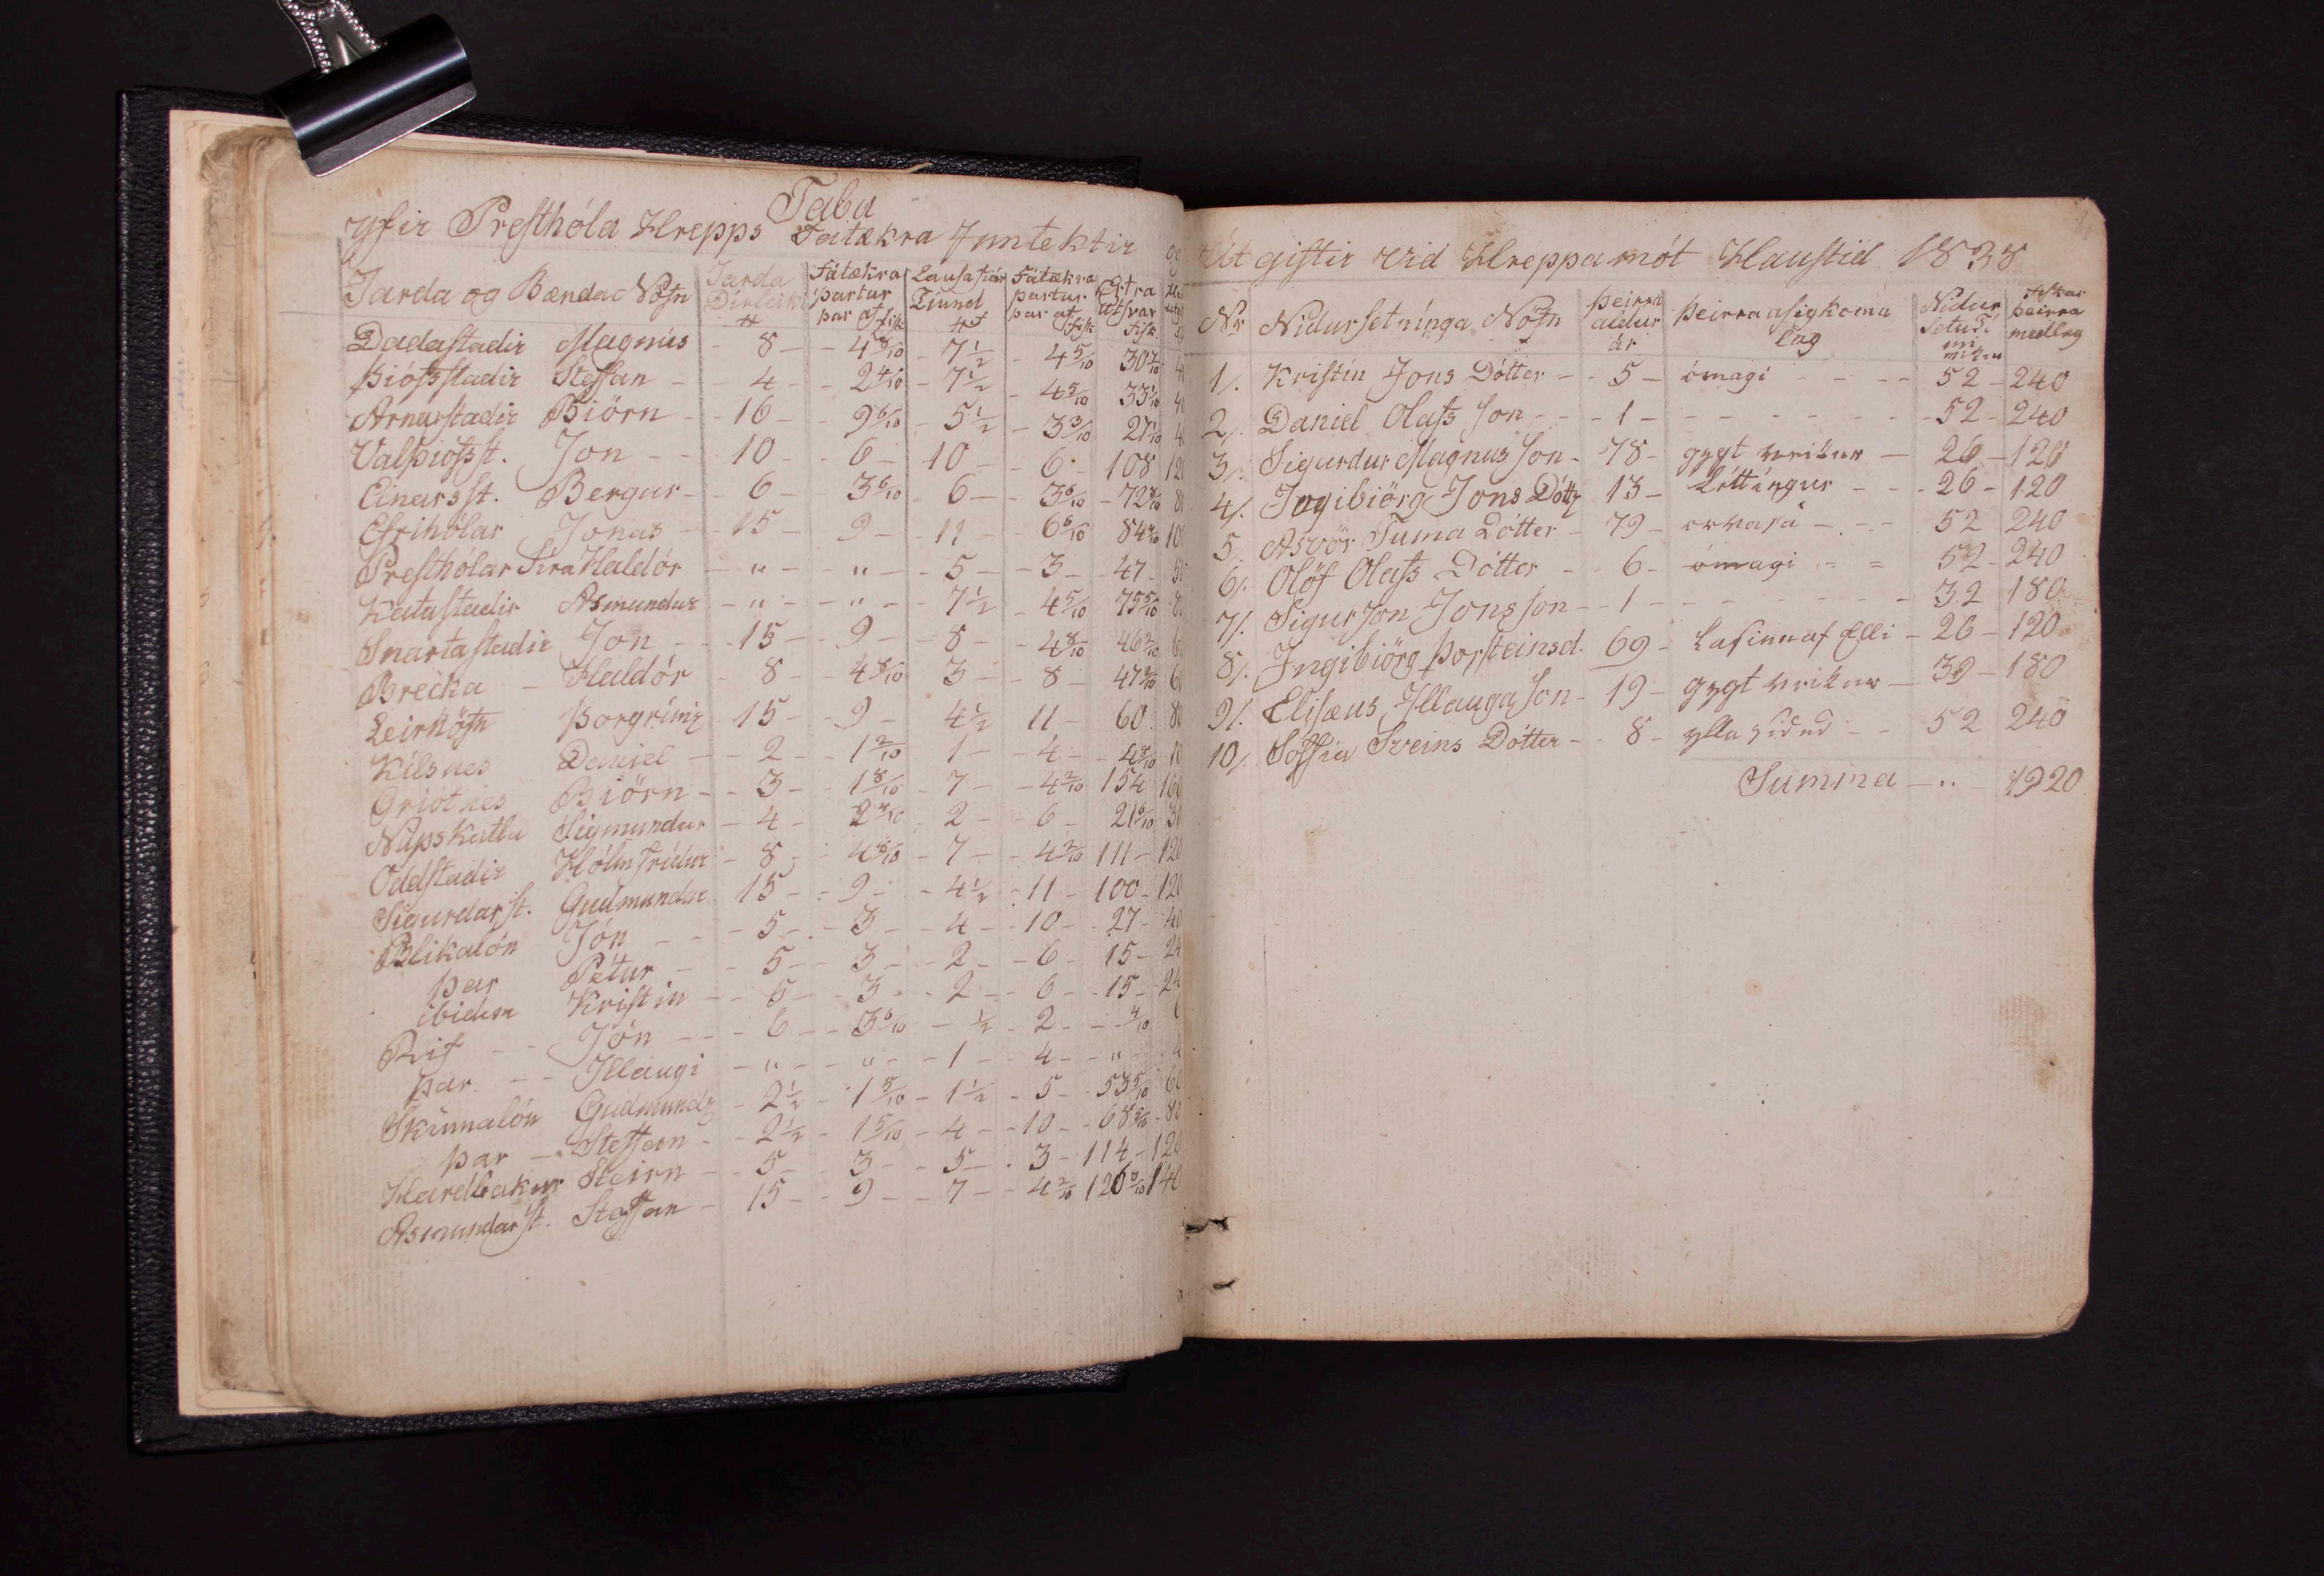 Tabla
yfir Presthóla Hrepps Fátækra Inntektir og
Jarda og Bænda Nöfn Jarda Dirleiki Fátækra partur þar af fisk Lausafiár Tiund Fátækra partur þar af fisk Extra Utsvar Fisk
Dadastadir Magnús - 8 - - 4 8/10 - 7 1/2 - 4 5/10 30 7/10 4
Þiófsstadir Steffan - - 4 - - 2 4/10 - 7 1/2 - 4 5/10 33 1/10 4
Arnarstadir Biörn - - 16 - - 9 6/10 - 5 1/2 - 3 3/10 27 1/10 4
Valþiófsst. Jon - - 10 - - 6 - 10 - - 6 - 108 120
Einarsst. Bergur - - 6 - 3 6/10 - 6 - - 3 6/10 - 72 8/10 8
Efrihólar Jonas - - 15 - - 9 - - 11 - - 6 6/10 84 4/10 10
Presthólar Síra Haldór - " - - " - - 5 - - 3 - 47 - 5
Katastadir Asmundur - " - - " - - 7 1/2 - 4 5/10 75 5/10 8
Snartastadir Jon - - 15 - - 9 - - 8 - - 4 8/10 46 2/10 6
Brecka - Haldór - 8 - - 4 8/10 3 - - 8 - 47 2/10 6
Leirhöfn Þorgrímr 15 - - 9 - 4 1/2 11 - 60 80
Kílsnes Daniel - - 2 - - 1 2/10 1 - - 4 - - 4 8/10 10
Griótnes Biörn - - 3 - - 1 8/10 - 7 - - 4 2/10 154 160
Núpskatla Sigmundur - 4 - 2 4/10 - 2 - - 6 - 21 6/10 30
Oddstadir Hólmfridur - 8 - 4 8/10 - 7 - - 4 2/10 111 - 120
Sigurdarst. Gudmundur 15 - - 9 - - 4 1/2 - 11 - 100 - 120
Blikalón Jón - - - 5 - - 3 - - 4 - - 10 - - 27 - 40
þar Pétur - - 5 - - 3 - - 2 - - 6 - 15 - 24
ibidem Kristín - - 5 - - 3 - - 2 - - 6 - - 15 - 24
Rif - - Jón - - - 6 - - 3 6/10 - 1/2 - 2 - - - 4/10 6
þar - - Illaugi - " - - " - - 1 - - 4 - - " -
Skinnalón Gudmundr - 2 1/2 - 1 5/10 - 1 1/2 - 5 - - 53 5/10 60
þar - Steffan - - 2 1/2 - 1 5/10 - 4 - - 10 - - 68 5/10 - 80
Hardbakur Steirn - - 5 - - 3 - - 5 - . 3 - 114 - 120
Asmundarst. Steffan - 15 - - 9 - - 7 - - 4 2/10 126 8/10 140
Útgiftir vid Hreppamót Haustid 1838
Nr Nidursetnínga Nöfn þeirra aldur ár þeirra ásigkomulag Nidur setu tími vikur fiskar þeirra medlag
1/. Kristín Jons Dótter - - 5 - ómagi - - - - 52 - 240
2/. Daniel Olafs Son - - - 1 - - - - - - - 52 - 240
3/. Sigurdur Magnus Son - 78 - gygt veikur - 26 - 120
4/. Ingibiörg Jons Dóttr 13 - Léttíngur - - - 26 - 120
5. Asvör Tuma Dótter - 79 - orvasa - - - 52 240
6/. Olöf Olafs Dótter - - 6 - ómagi - = 52 - 240
7/. Sigurjon Jons son - - 1 - - - - - - 32 180
8/. Ingibiörg Þorsteinsd. 69 - Lasinn af Elli - 26 - 120
9/. Elisæus Illauga Son - 19 - gygt veikur - 39 - 180
10/. Soffia Sveins Dótter - - 8 - ylla sidud - - 52 240
Summa - " - 1920